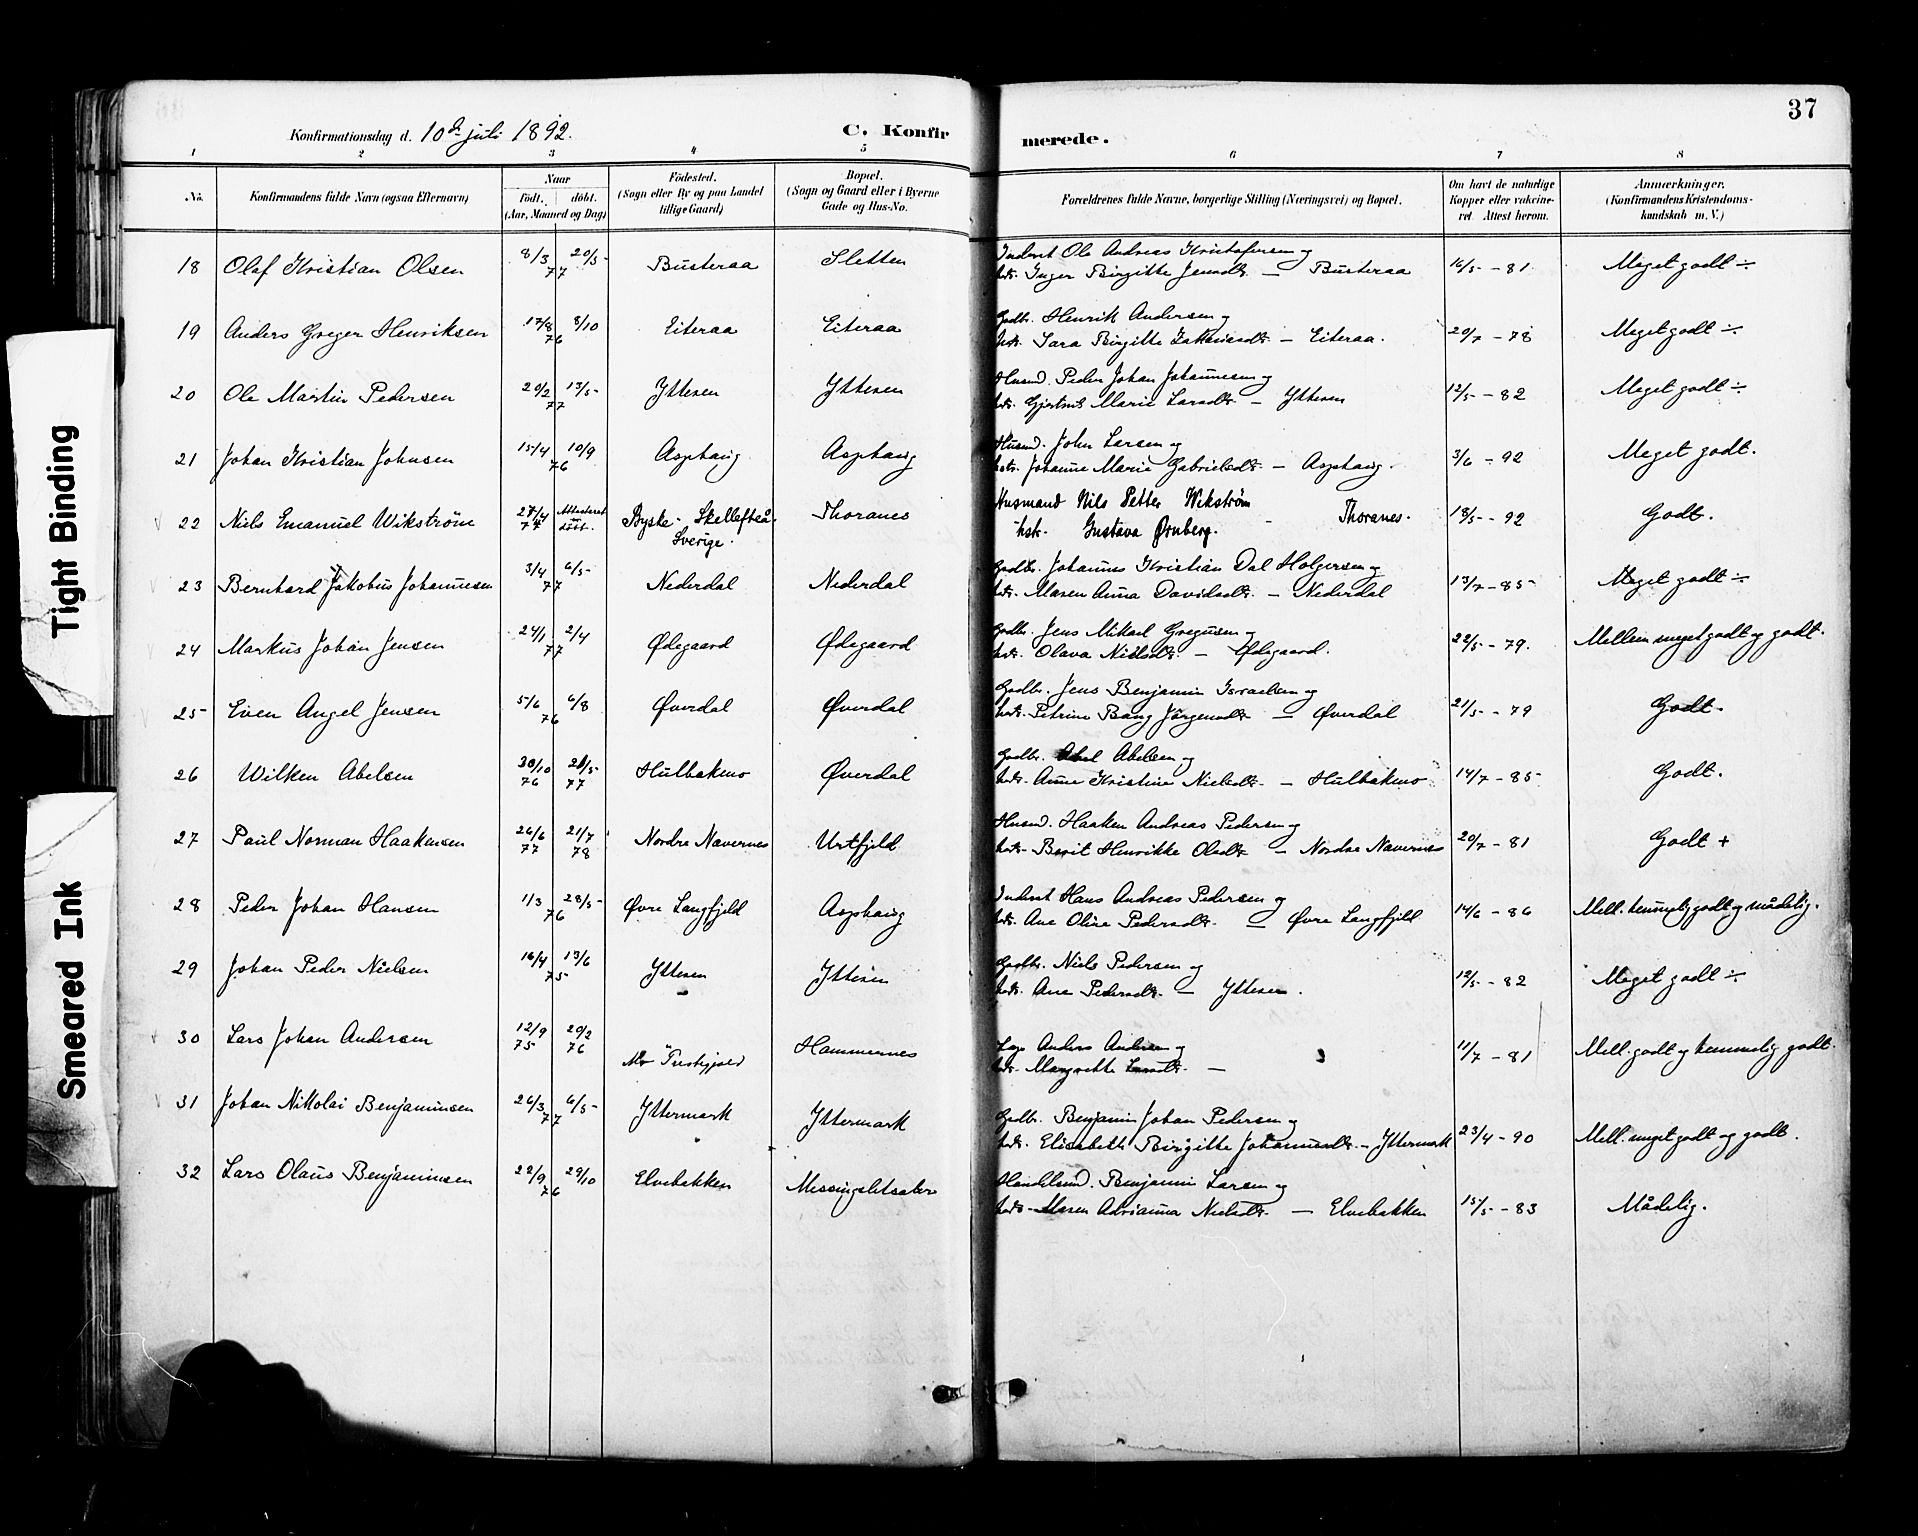 37
Konfirmationsdag d. 10de juli 1892.
C. Konfir
merede.
1 2 3 4 5 6 7 8
No.
Konfirmandens fulde Navn (ogsaa Efternavn)
Naar
födt. döbt.
(Aar, Maaned og Dag)
Födested.
(Sogn eller By og paa Landet
tillige Gaard)
Bopæl.
(Sogn og Gaard eller i Byerne
Gade og Hus-No.
Forældrenes fulde Navne, borgerlige Stilling (Næringsvei) og Bopæl.
Om havt de naturlige
Kopper eller vakcine-
ret. Attest herom.
Anmærkninger.
(Konfirmandens Kristendoms-
kundskab m. V.)
18 Olaf Kristian Olsen 8/3 20/5 77 Busteraa Sletten
Inderst Ole Andreas Kristofersen og
hstr. Inger Birgitte Jensdtr. — Busteraa 16/5 - 81 Meget godt ÷
19 Anders Greger Henriksen 17/8 8/10 76 Eiteraa Eiteraa
Gadbr. Henrik Andersen og
hstr. Sara Birgitte Zakariasdtr. — Eiteraa. 20/7 - 78 Meget godt ÷
20 Ole Martin Pedersen 20/2 13/5 77 Ytteren Ytteren
Husmd. Peder Johan Johannesen og
hstr. Gjertrud Marie Larsdtr. — Ytteren 12/5 - 82 Meget godt ÷
21 Johan Kristian Johnsen 15/4 10/9 76 Asphaug Asphaug
Husmd. John Larsen og
hstr. Johanne Marie Gabrielsdtr. — Asphaug. 3/6 - 92 Meget godt.
22 Niels Emanuel Wikstrøm 27/4 77 Attesteret döbt. Byske - Skellefteå - Thoranes
Sverige.
Husmand Nils Petter Wikström
hstr. Gustava Ørnberg. - Thoranes. 18/5 - 92 Godt.
23 Bernhard Jakobus Johannesen 3/4 6/5 77 Nederdal Nederdal
Gadbr. Johannes Kristian Dal Holgersen og
hstr. Maren Anna Davidsdtr. — Nederdal 13/7 - 85 Meget godt ÷
24 Markus Johan Jensen 24/1 2/4 77 Ødegaard Ødegaard
Gadbr. Jens Mikael Gregusen og
hstr. Olava Nilsdtr. — Ødegaard. 22/5 - 79. Mellem meget godt og godt.
25 Even Angel Jensen 5/6 6/8 76 Øverdal Øverdal
Gadbr. Jens Benjamin Israelsen og
hstr. Petrine Bang Jörgensdtr — Øverdal 21/5 - 79 Godt.
26 Wilken Abelsen 30/10 76 21/5 77 Hulbakmo Øverdal
Gadbr. Abel Abelsen og
hstr. Anne Kristine Nielsdtr. — Hulbakmo 14/7 - 85 Godt.
27 Paul Norman Haakensen 26/6 77 21/7 78 Nordre Nævernes Urtfjeld
Husmd. Haaken Andreas Pedersen og
hstr. Berit Henrikke Olsdtr — Nordre Nævernes 20/7 - 81 Godt +
28 Peder Johan Hansen 1/3 28/5 76 Øvre Langfjeld Asphaug
Inderst Hans Andreas Pedersen og
hstr. Ane Oline Pedersdtr. — Øvre Langfjeld 14/6 - 86 Mell. temmelig godt og mådelig.
29 Johan Peder Nielsen 16/4 13/6 75 Ytteren Ytteren
Gadbr. Niels Pedersen og
hstr. Ane Pedersdtr. — Ytteren. 12/5 - 82 Meget godt ÷
30 Lars Johan Andersen 12/9 75 20/2 76 Hammernes
Lap Anders Andersen og
hstr. Margrette Larsdtr. — 11/7 - 81 Mell. godt og temmelig godt.
31 Johan Nikolai Benjaminsen 26/3 6/5 77 Yttermark Yttermark
Gadbr. Benjamin Johan Pedersen og
hstr. Elisabeth Birgitte Johannesdtr. — Yttermark 23/4 - 90 Mell. meget godt og godt.
32 Lars Olaus Benjaminsen 22/9 29/10 76 Elvebakken
Handelsmd. Benjamin Larsen og
hstr. Maren Adrianna Nielsdtr. — Elvebakken 15/5 - 83 Mådelig.
Tight Binding
Smeared Ink